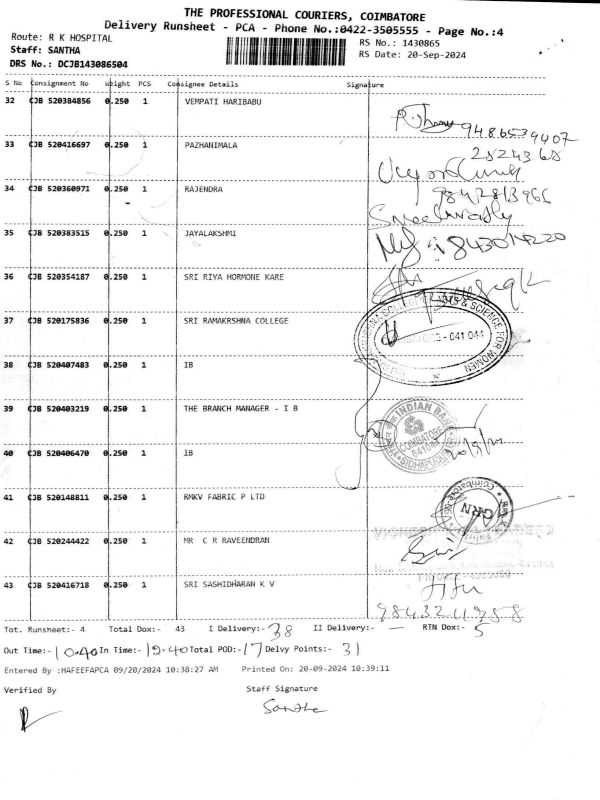 THE PROFESSIONAL COURIERS, COIMBATORE
Delivery Runsheet - PCA - Phone No.:0422-3505555 - Page No.:4
Route: R K HOSPITAL
RS No.: 1430865
Staff: SANTHA
RS Date: 20-Sep-2024
DRS No.: DCJB143086504
S No Consignment No Weight PCS Consignee Details Signature
32 CJB 520384856 0.250 1 VEMPATI HARIBABU
9486539407
33 CJB 520416697 0.250 1 PAZHANIMALA
2824368
34 CJB 520360971 0.250 1 RAJENDRA
9842813966
35 CJB 520383515 0.250 1 JAYALAKSHMI
36 CJB 520354187 0.250 1 SRI RIYA HORMONE KARE
37 CJB 520175836 0.250 1 SRI RAMAKRSHNA COLLEGE
ARTS & SCIENCE FOR WOMEN
- 641 044
38 CJB 520407483 0.250 1 IB
39 CJB 520403219 0.250 1 THE BRANCH MANAGER - I B
INDIAN BANK
COIMBATORE
SIDHAPUDUR
40 CJB 520406470 0.250 1 IB
41 CJB 520148811 0.250 1 RMKV FABRIC P LTD
Coimbatore
GRN
42 CJB 520244422 0.250 1 MR C R RAVEENDRAN
43 CJB 520416718 0.250 1 SRI SASHIDHARAN K V
9843241958
Tot. Runsheet:- 4 Total Dox:- 43 I Delivery:- 38 II Delivery:- — RTN Dox:- 5
Out Time:- 10.40 In Time:- 12.40 Total POD:- 17 Delvy Points:- 31
Entered By :HAFEEFAPCA 09/20/2024 10:38:27 AM Printed On: 20-09-2024 10:39:11
Verified By Staff Signature
Santha